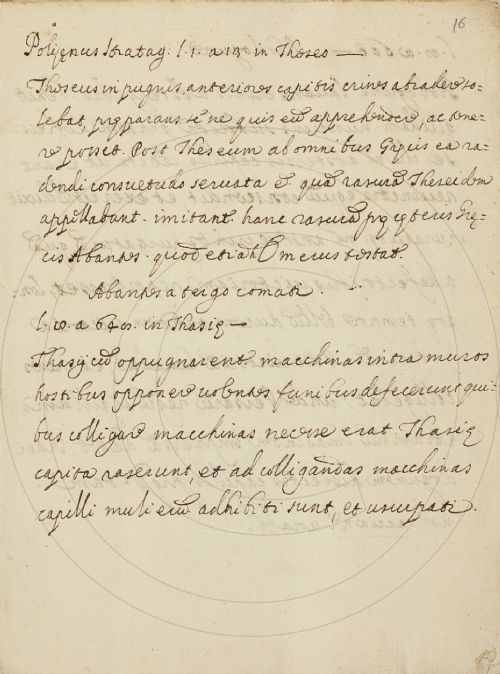 16
Polyęnus Stratag. l. 1. a 13 in Theseo —
Theseus in pugnis, anteriores capitis crines abradere so=
lebat, pręparans sè ne quis eū apprehendere, ac tene=
re posset. Post Theseum ab omnibus Gręcis ea ra=
dendi consuetudo seruata ē. quā rasurā Theseidem
appellabant. imitant hanc rasurā prę cęteris Grę=
cis Abantes. quod etiā Omerus testat.
Abantes a tergo comati.
in Thasię —
Thasij cū oppugnarent. macchinas intra muros
hostibus opponere uolentes funibus defecerunt qui=
bus colligare macchinas necesse erat. Thasię
capita raserunt, et ad colligandas macchinas
capilli mulierū adhibiti sunt, et usurpati.